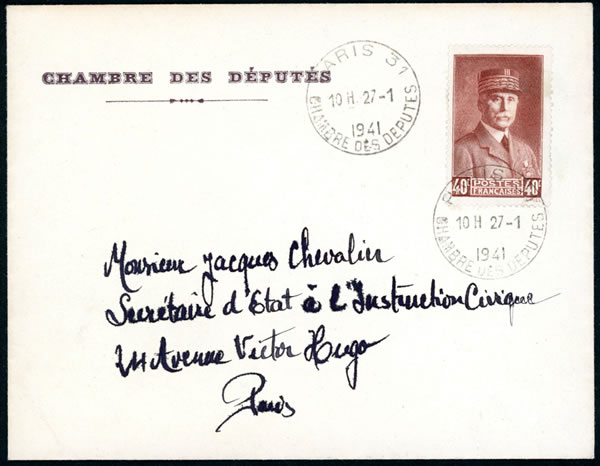 CHAMBRE DES DÉPUTÉS
PARIS 31
10 H 27-1
1941
CHAMBRE DES DEPUTES
40c POSTES FRANÇAISES 40c
10 H 27-1
1941
CHAMBRE DES DEPUTES
Monsieur Jacques Chevalier
Secrétaire d'Etat à L'Instruction Civique
24 Avenue Victor Hugo
Paris